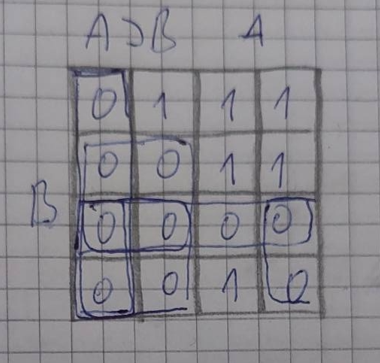 A > B A
0 1 1 1
0 0 1 1
B
0 0 0 0
0 0 1 0